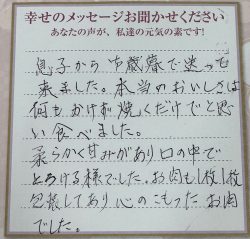 幸せのメッセージお聞かせください
あなたの声が、私達の元気の素です!
息子からお歳暮で送って
来ました。本当のおいしさは
何もかけず焼くだけでと思
い食べました。
柔らかく甘みがあり口の中で
とろける様でした。お肉も1枚1枚
包装してあり心のこもったお肉
でした。